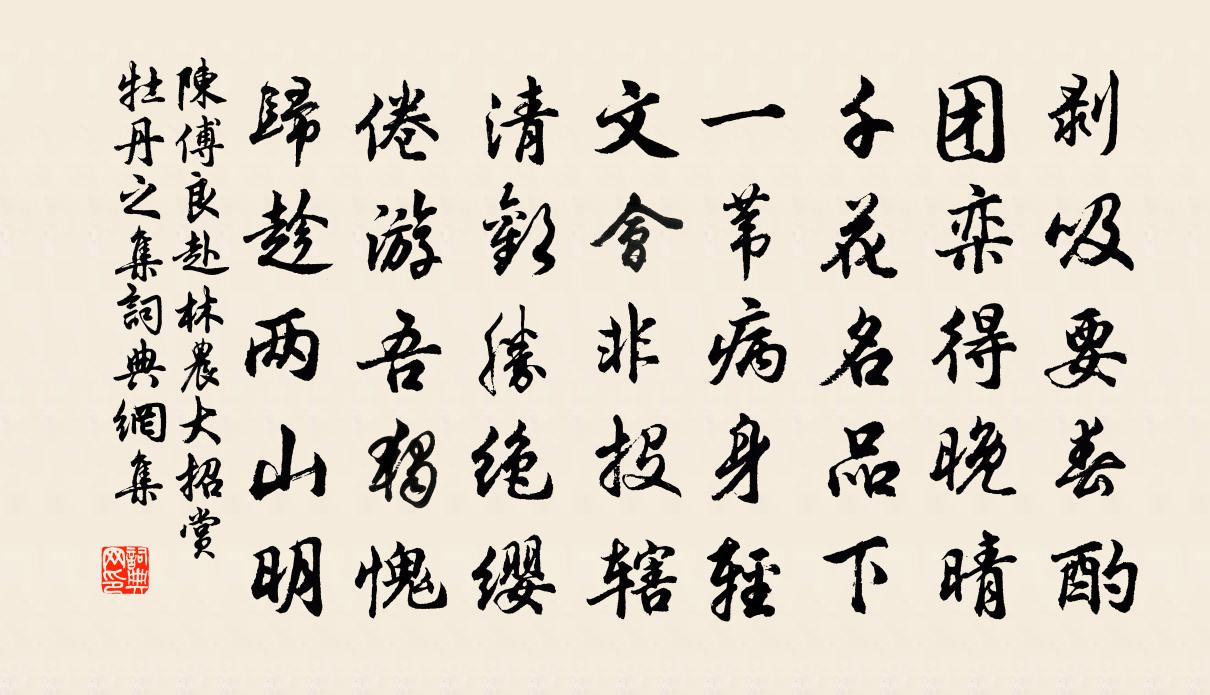 剥吸要春酌
团栾得晚晴
千花名品下
一苇病身輕
文會非投辖
清歡勝绝缨
倦游吾獨愧
歸趁两山明
陳傅良赴林農大招賞
牡丹之集詞典網集
詞典
网印